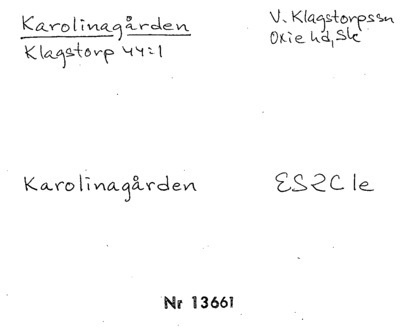 Karolinagården
V. Klagstorpssn
Klagstorp 44:1
Oxie hd, Sk
Karolinagården
ES2C 1e
Nr 13661